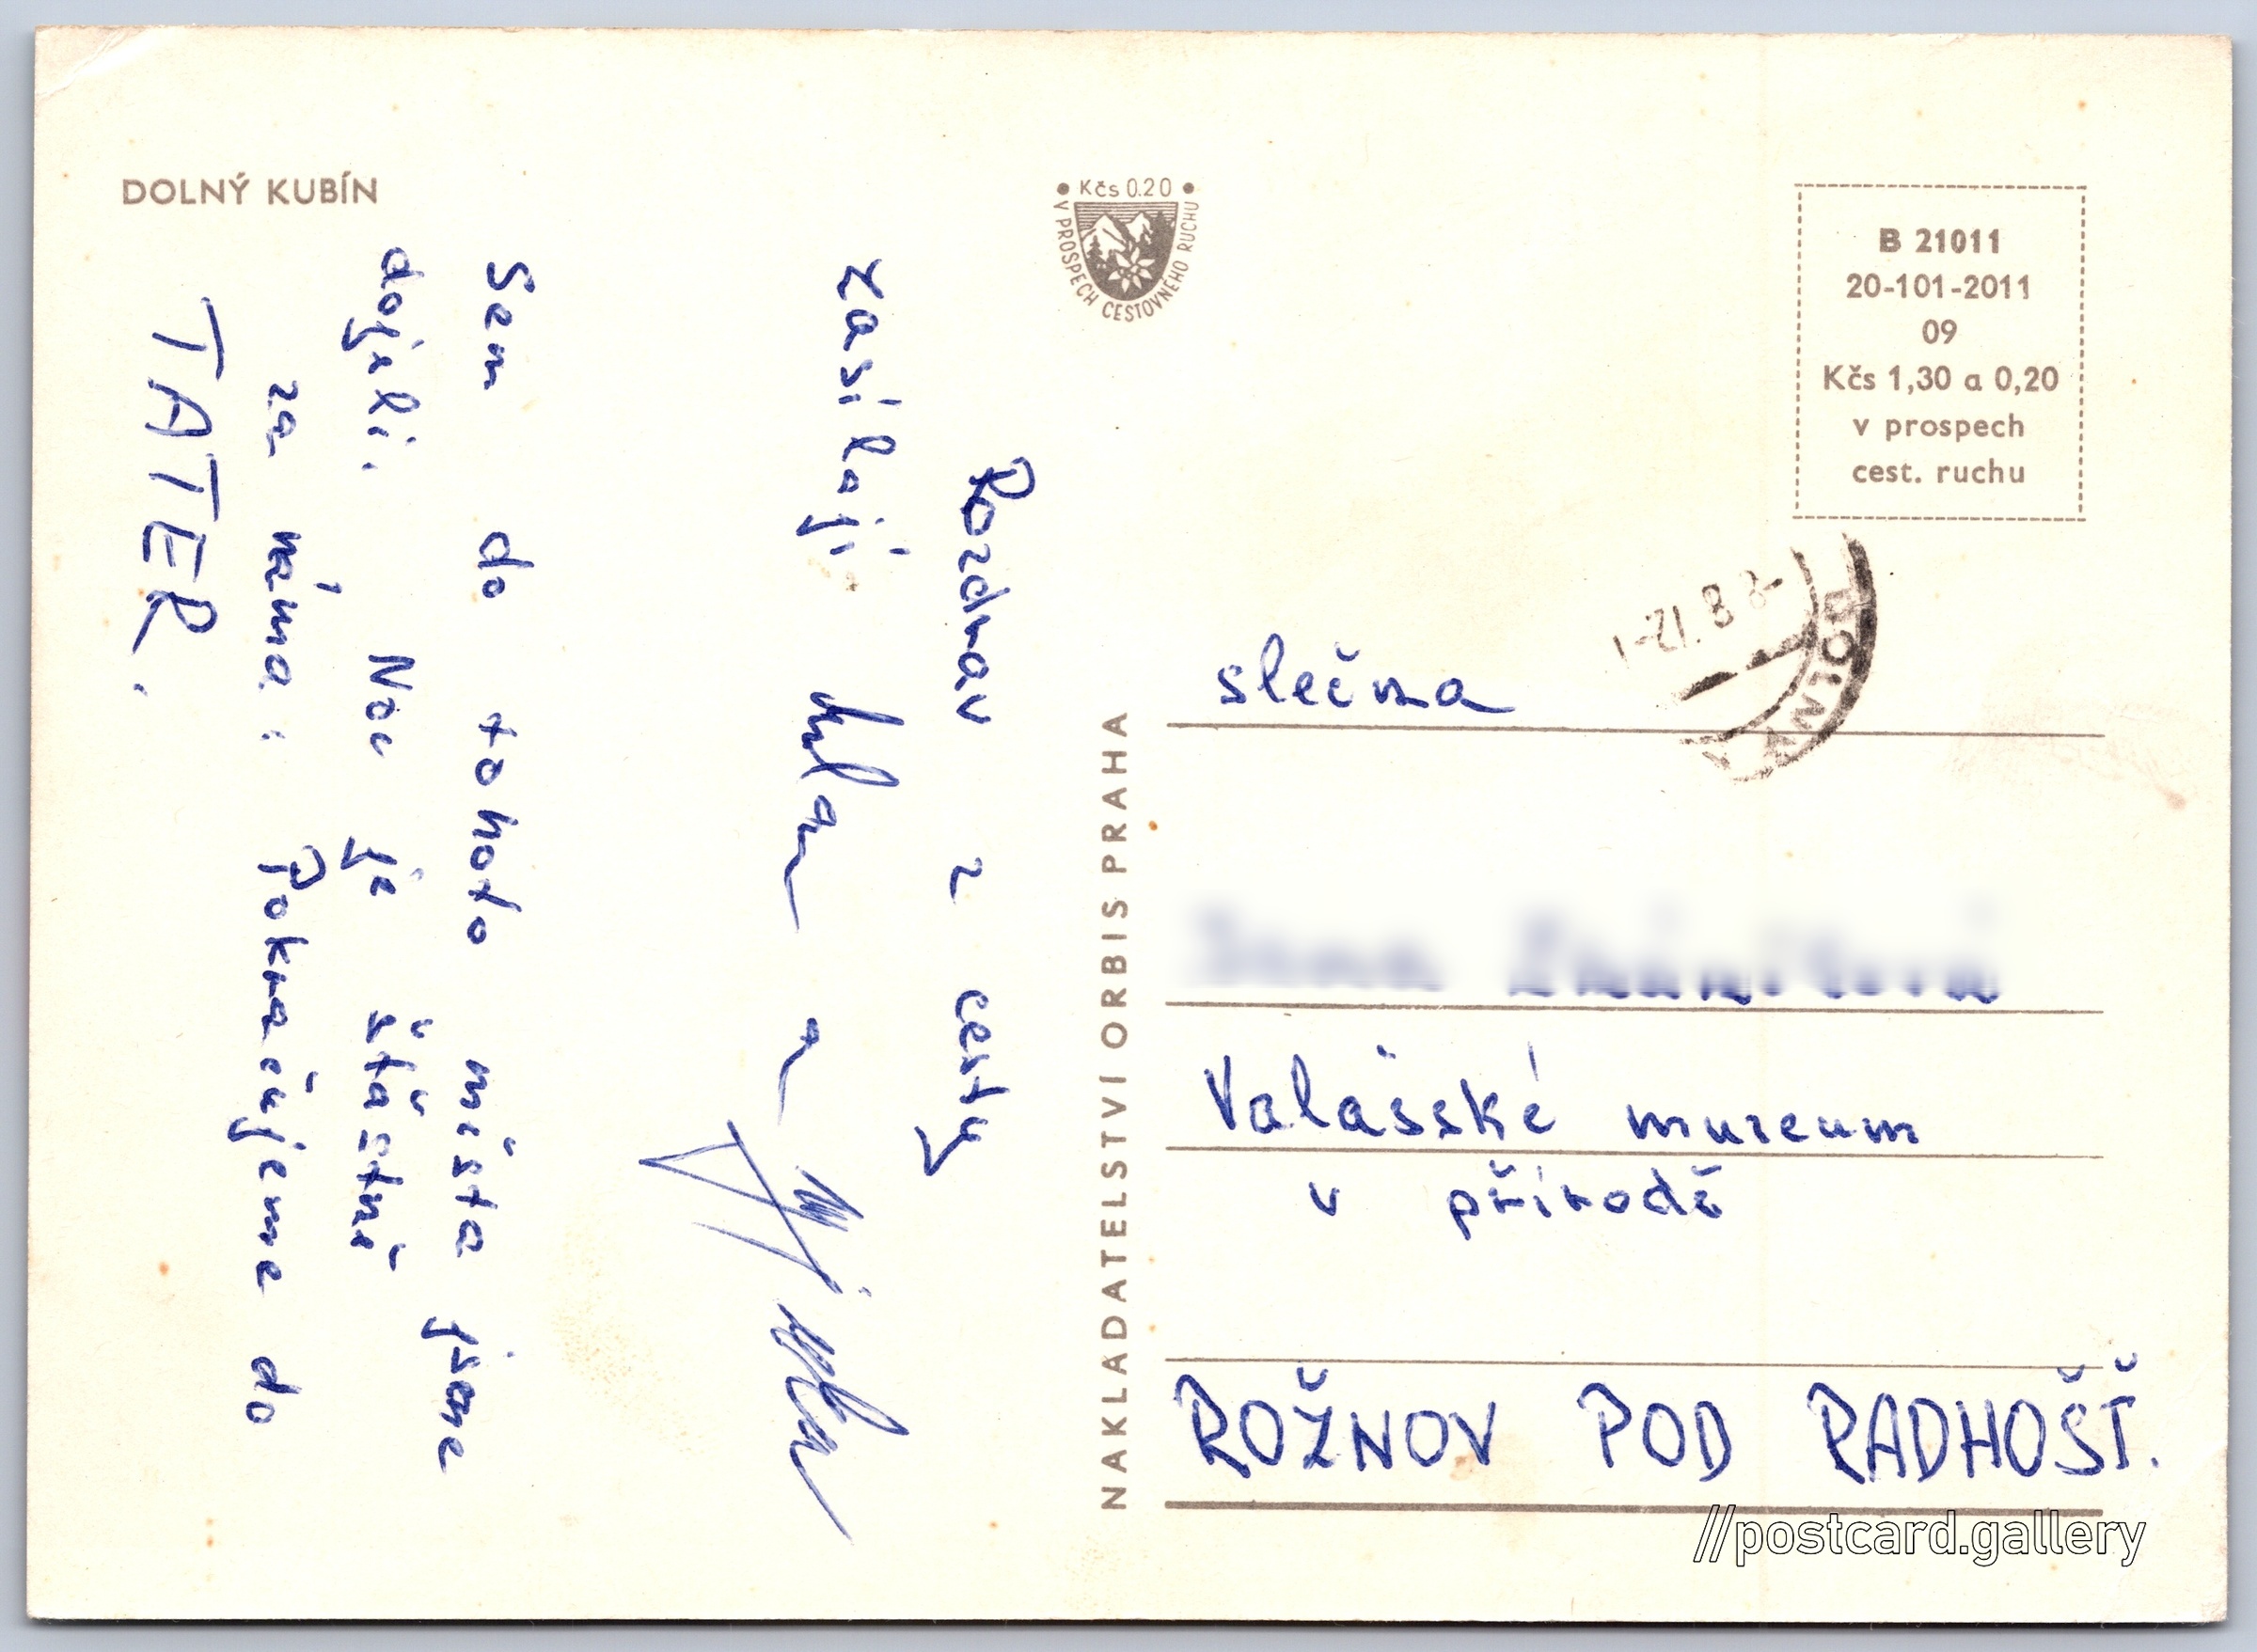 DOLNÝ KUBÍN
• Kčs 0.20 •
V PROSPECH CESTOVNÉHO RUCHU
B 21011
20-101-2011
09
Kčs 1,30 a 0,20
v prospech
cest. ruchu
Pozdrav z cesty
zasílají a
Sem do tohoto místa jsme
dojeli. Noc je šťastně
za náma. Pokračujeme do
TATER.
NAKLADATELSTVÍ ORBIS PRAHA
slečna
Valašské museum
v přírodě
ROŽNOV POD RADHOŠŤ.
//postcard.gallery